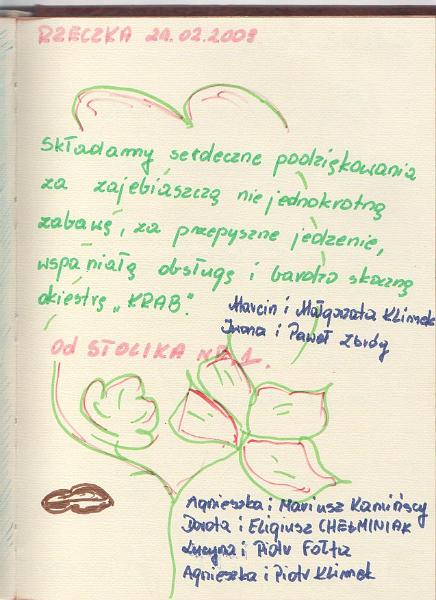 RZECZKA 21.02.2009
Składamy serdeczne podziękowania
za zajebiaszczą niejednokrotną
zabawę, za przepyszne jedzenie,
wspaniałą obsługę i bardzo skoczną
okiestrę „KRAB".
Marcin i Małgorzata Klimek
Iwona i Paweł Zbróg
Od STOLIKA NR. 1.
Agnieszka i Mariusz Kamińscy
Dorota i Eligiusz CHEŁMINIAK
Lucyna i Piotr Fołta
Agnieszka i Piotr Klimek